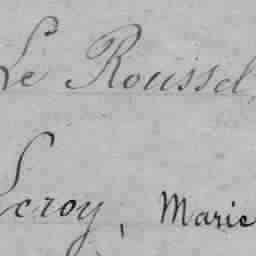 Le Roussel,
Leroy, Marie